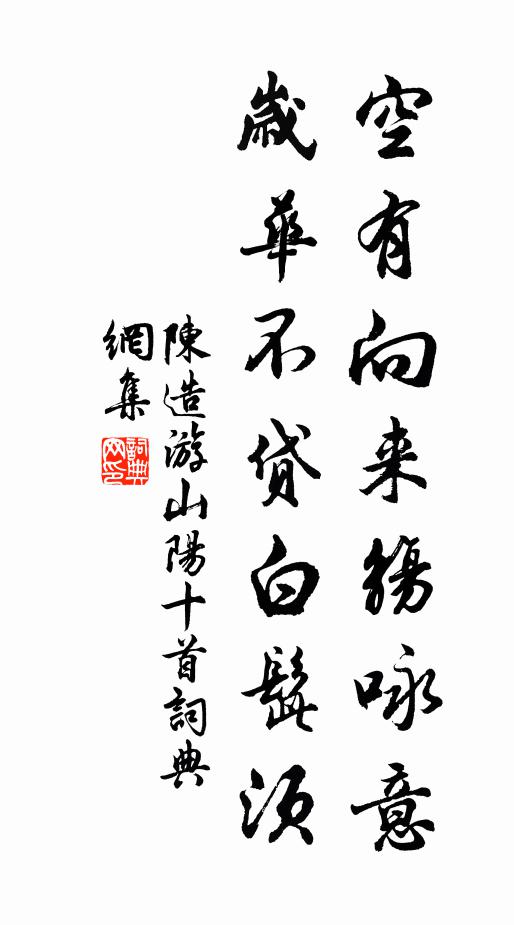 空有向来觴咏意
歲華不貸白髭須
陳造游山陽十首詞典
網集
詞典網印